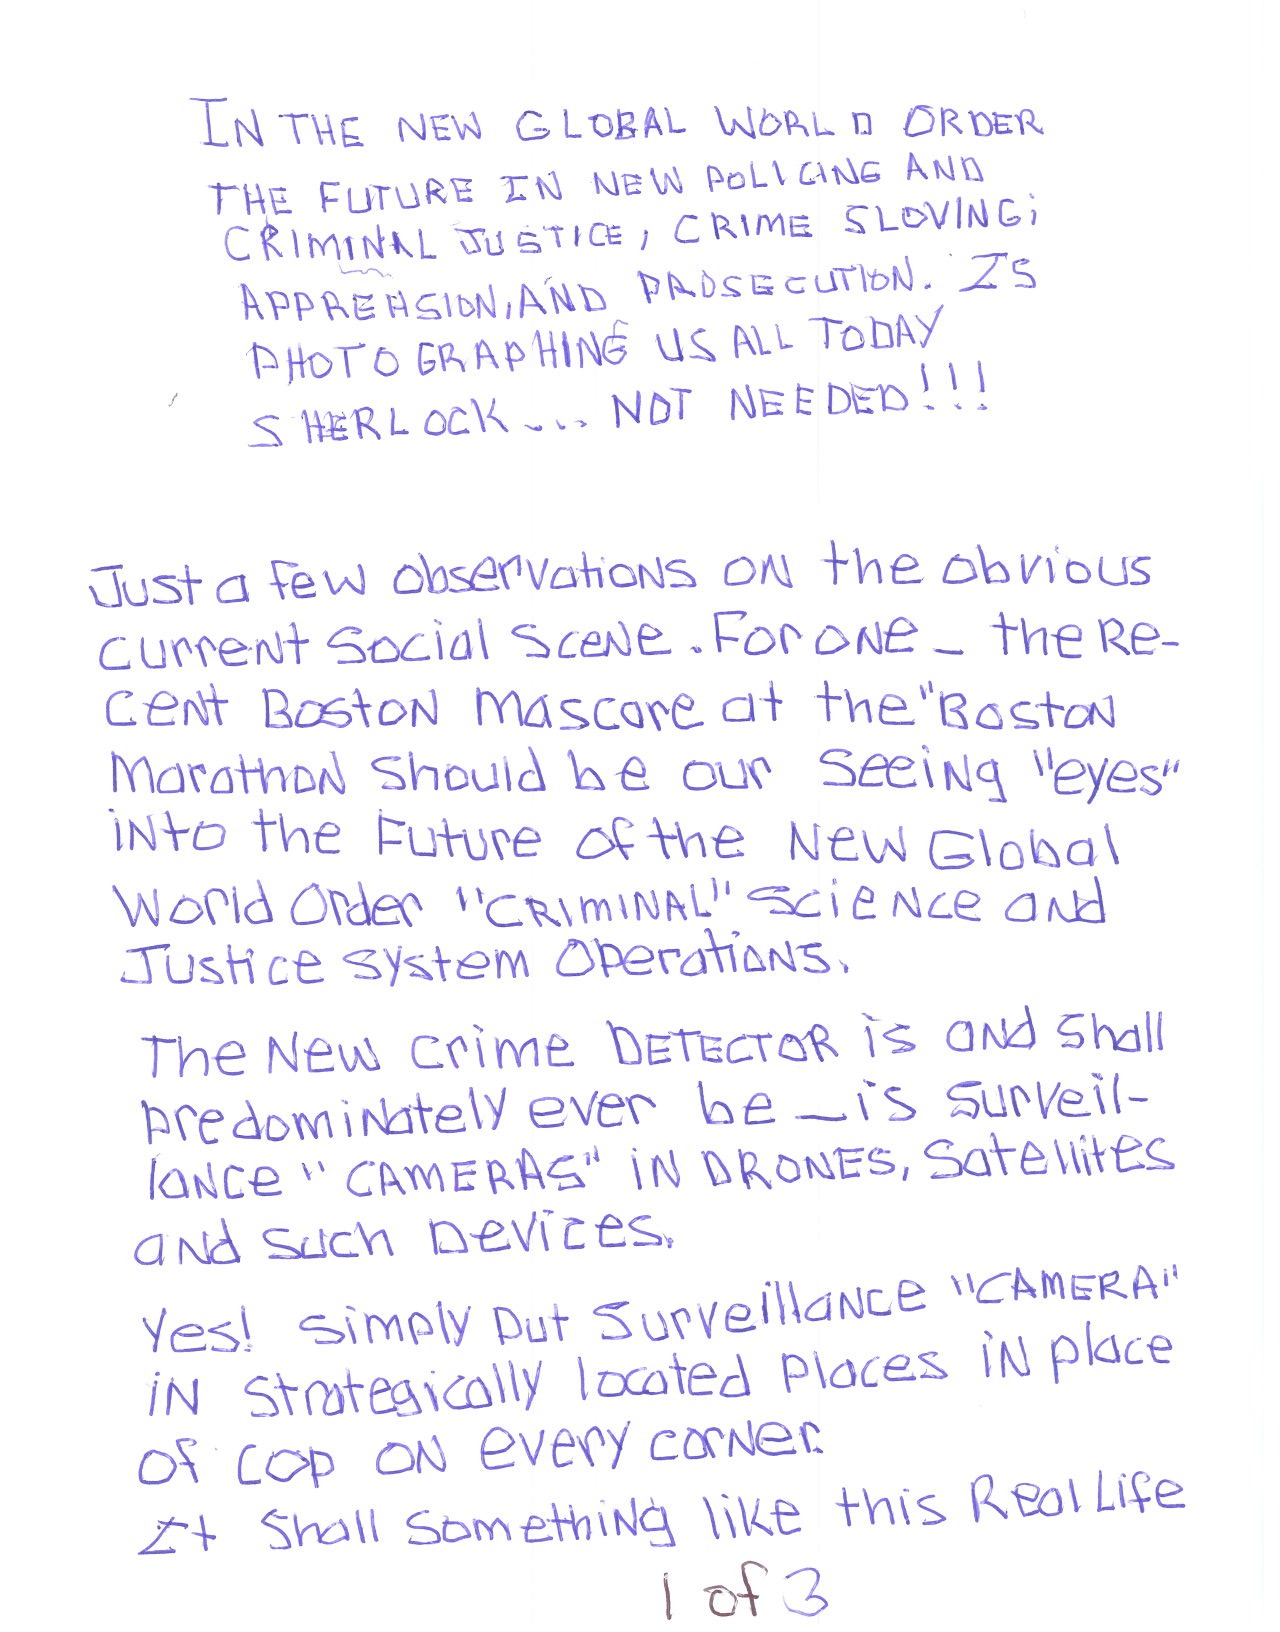 IN THE NEW GLOBAL WORLD ORDER
THE FUTURE IN NEW POLICING AND
CRIMINAL JUSTICE, CRIME SLOVING;
APPREHSION, AND PROSECUTION. IS
PHOTOGRAPHING US ALL TODAY
SHERLOCK... NOT NEEDED!!!
Just a few observations on the obvious
current social scene. For one _ the Re-
cent Boston mascare at the "Boston
Marathon should be our seeing "eyes"
into the Future of the New Global
World Order "CRIMINAL" science and
Justice system operations.
The New crime DETECTOR is and shall
predominately ever be _ is surveil-
lance "CAMERAS" in DRONES, satellites
and such Devices.
Yes! simply put surveillance "CAMERA"
in strategically located places in place
of cop on every corner.
It shall something like this Real Life
1 of 3